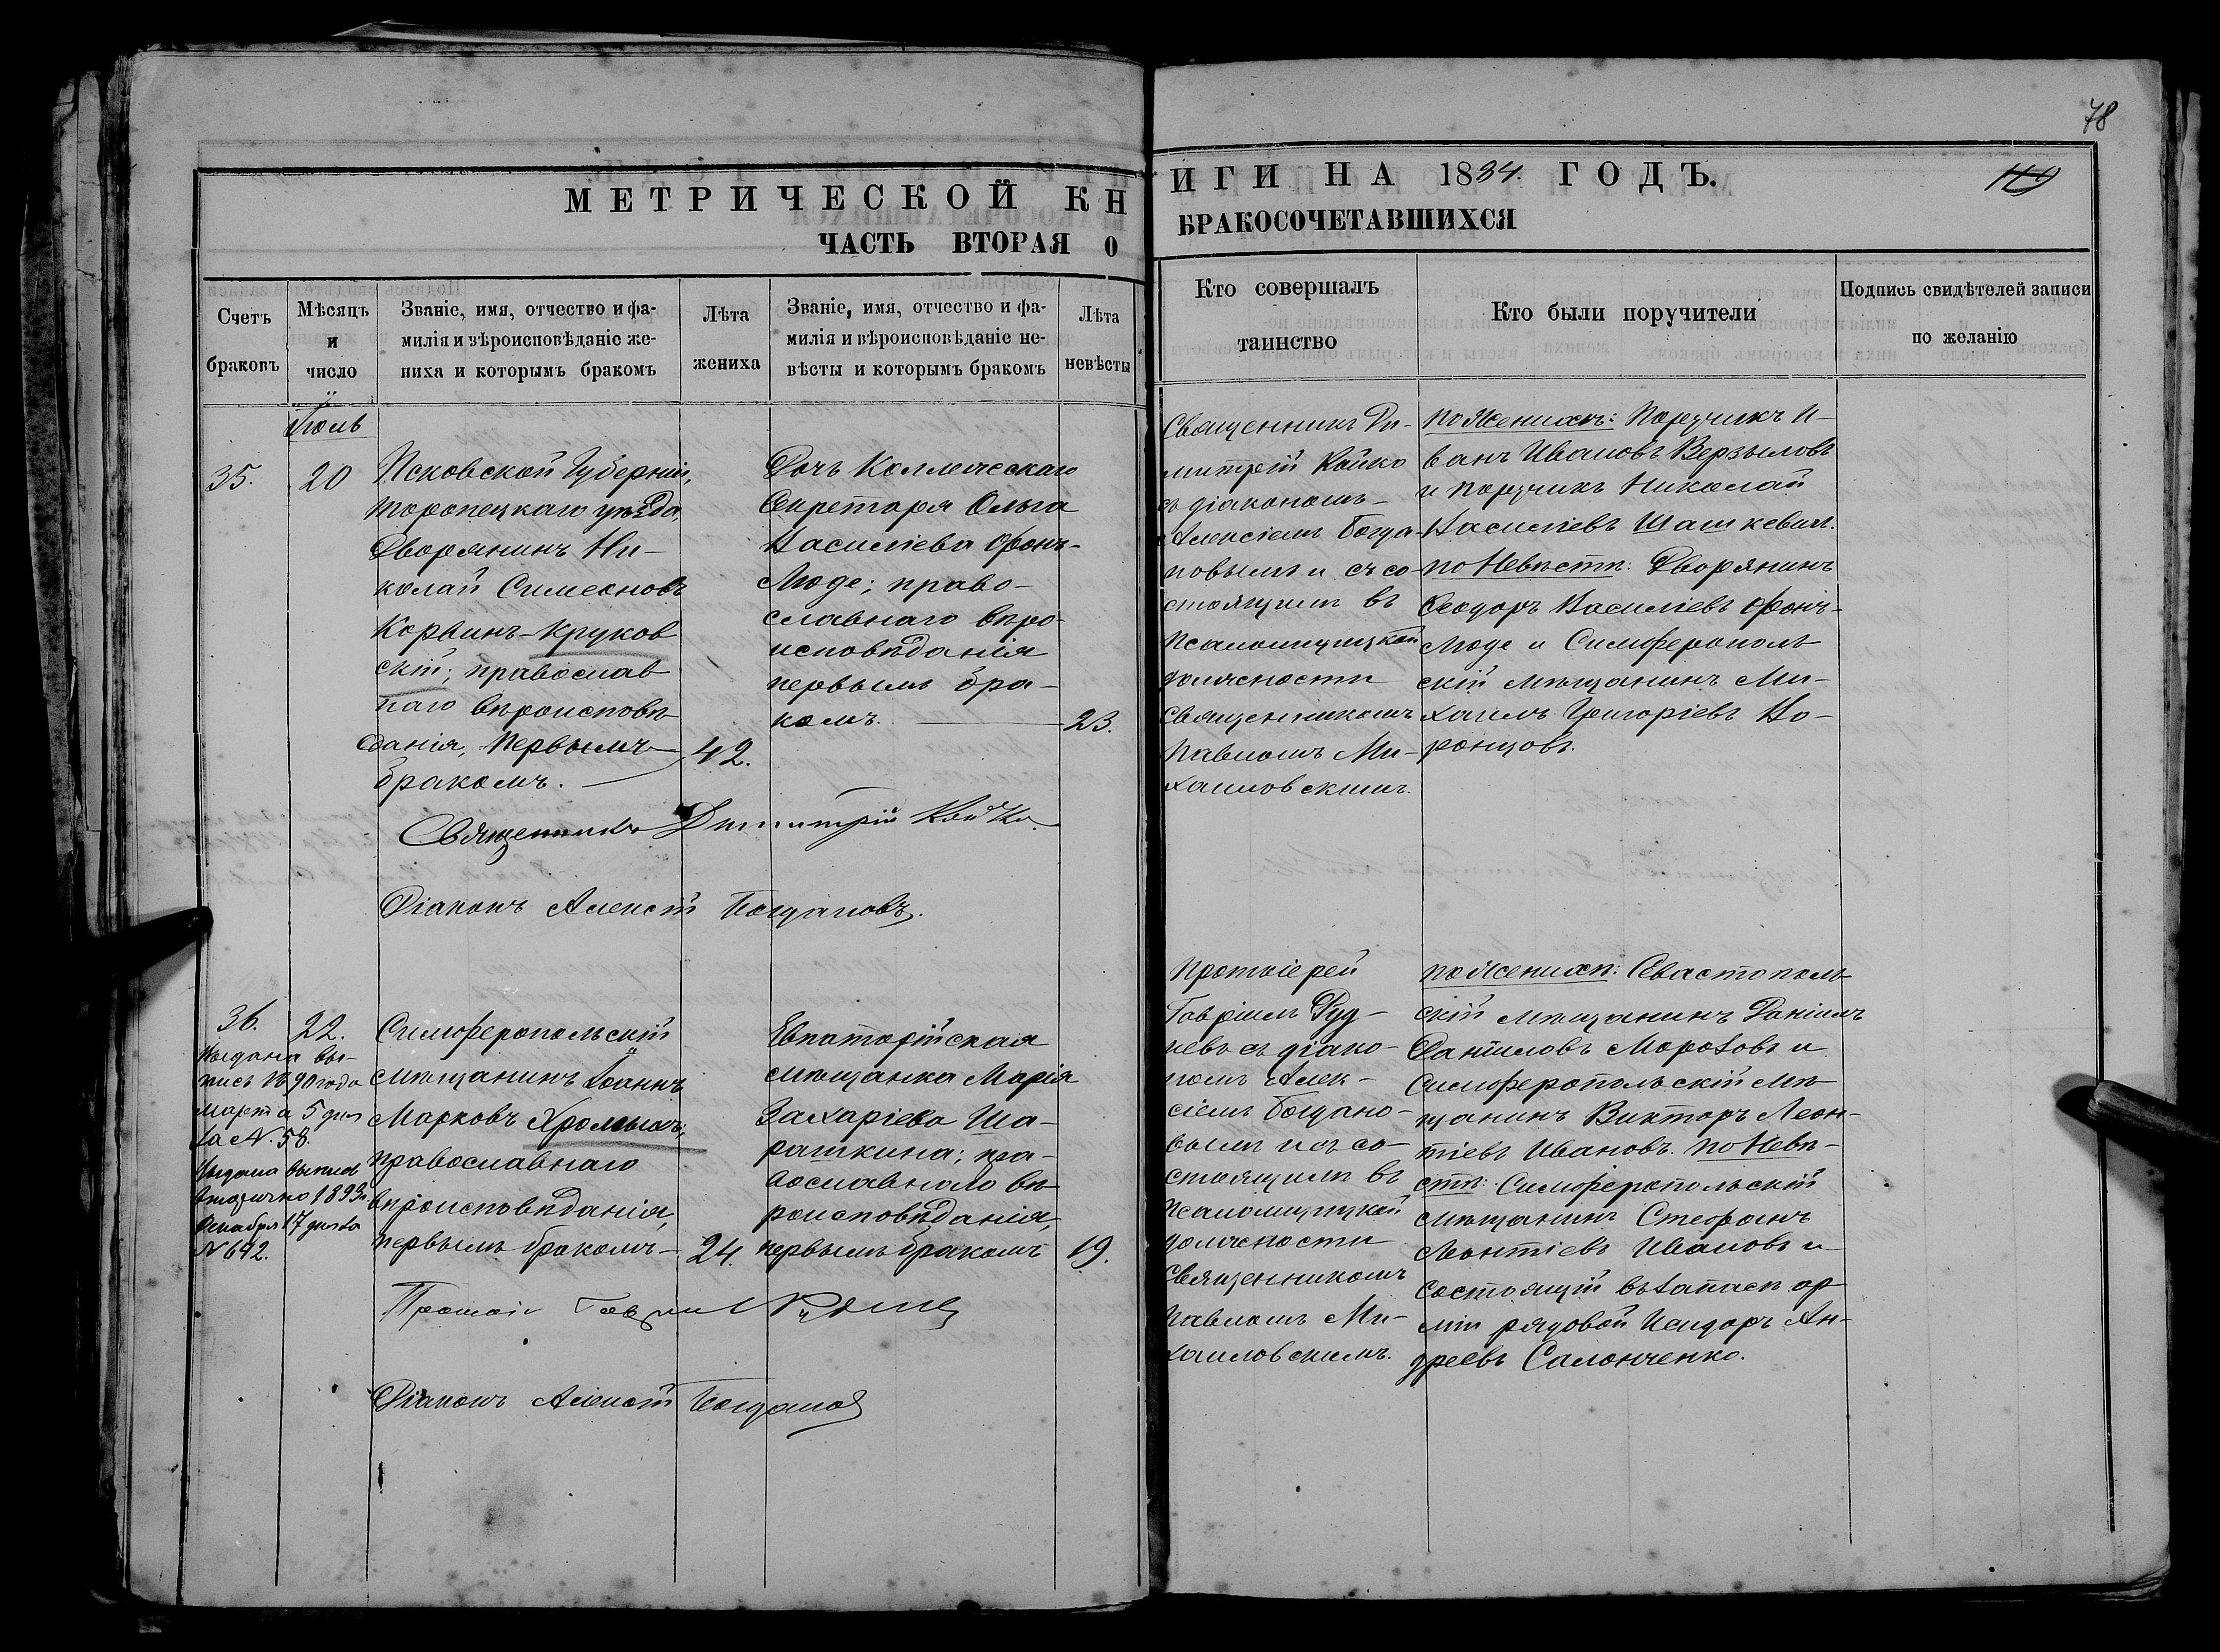 78
119
МЕТРИЧЕСКОЙ КНИГИ НА 1884. ГОДЪ.
ЧАСТЬ ВТОРАЯ О БРАКОСОЧЕТАВШИХСЯ
Счетъ браковъ
Мѣсяцъ и число
Званіе, имя, отчество и фа-
милія и вѣроисповѣданіе же-
ниха и которымъ бракомъ
Лѣта жениха
Званіе, имя, отчество и фа-
милія и вѣроисповѣданіе не-
вѣсты и которымъ бракомъ
Лѣта невѣсты
Кто совершалъ
таинство
Кто были поручители
Подпись свидѣтелей записи
по желанію
35.
20
Псковской Губерніи,
Торопецкаго уѣзда,
Дворянинъ Ни-
колай Симеоновъ
Корвинъ-Круков
скій; православ
наго вѣроисповѣ
данія, первымъ
бракомъ.
42.
Дочь Коллежскаго
Секретаря Ольга
Василіева Фонъ-
Люде; право-
славнаго вѣро-
исповѣданія
первымъ бра-
комъ.
23.
Священникъ Ди-
митрій Койко
съ діакономъ
Алексіемъ Богда-
новымъ и съ со-
стоящимъ въ
Псаломщицкой
должности
Священникомъ
Павломъ Ми-
хаиловскимъ.
По Женихѣ: Поручикъ И-
ванъ Ивановъ Верзыловъ
и Поручикъ Николай
Василіевъ Шашкевич.
по Невѣстѣ: Дворянинъ
Феодоръ Василіевъ Фонъ-
Люде и Симферополь
скій мѣщанинъ Ми-
хаилъ Григоріевъ Во-
ронцовъ.
Священникъ Димитрій Койко.
Діаконъ Алексій Богдановъ.
36.
22.
Выдана вы-
пись 1890 года
Марта 5 дня
за №. 58.
Выдана выпись
вторично 1893г.
Декабря 17 дня за
№ 642.
Симферопольскій
мѣщанинъ Іоаннъ
Марковъ Хромыхъ;
православнаго
вѣроисповѣданія,
первымъ бракомъ
24.
Евпаторійская
мѣщанка Марія
Захаріева Ша-
рашкина; пра-
вославнаго вѣ
роисповѣданія,
первымъ бракомъ
19.
Протоіерей
Гавріилъ Руд-
невъ съ діако-
номъ Алек-
сіемъ Богдано-
вымъ и съ со-
стоящимъ въ
Псаломщицкой
должности
Священникомъ
Павломъ Ми-
хаиловскимъ.
по Женихѣ: Севастополь
скій мѣщанинъ Даніилъ
Даніиловъ Морозовъ и
Симферопольскій мѣ
щанинъ Викторъ Леон-
тіевъ Ивановъ. по Невѣ-
стѣ: Симферопольскій
мѣщанинъ Стефанъ
Леонтіевъ Ивановъ и
состоящій въ запасѣ ар
міи рядовой Исидоръ Ан-
дреевъ Салонченко.
Діаконъ Алексій Богдановъ